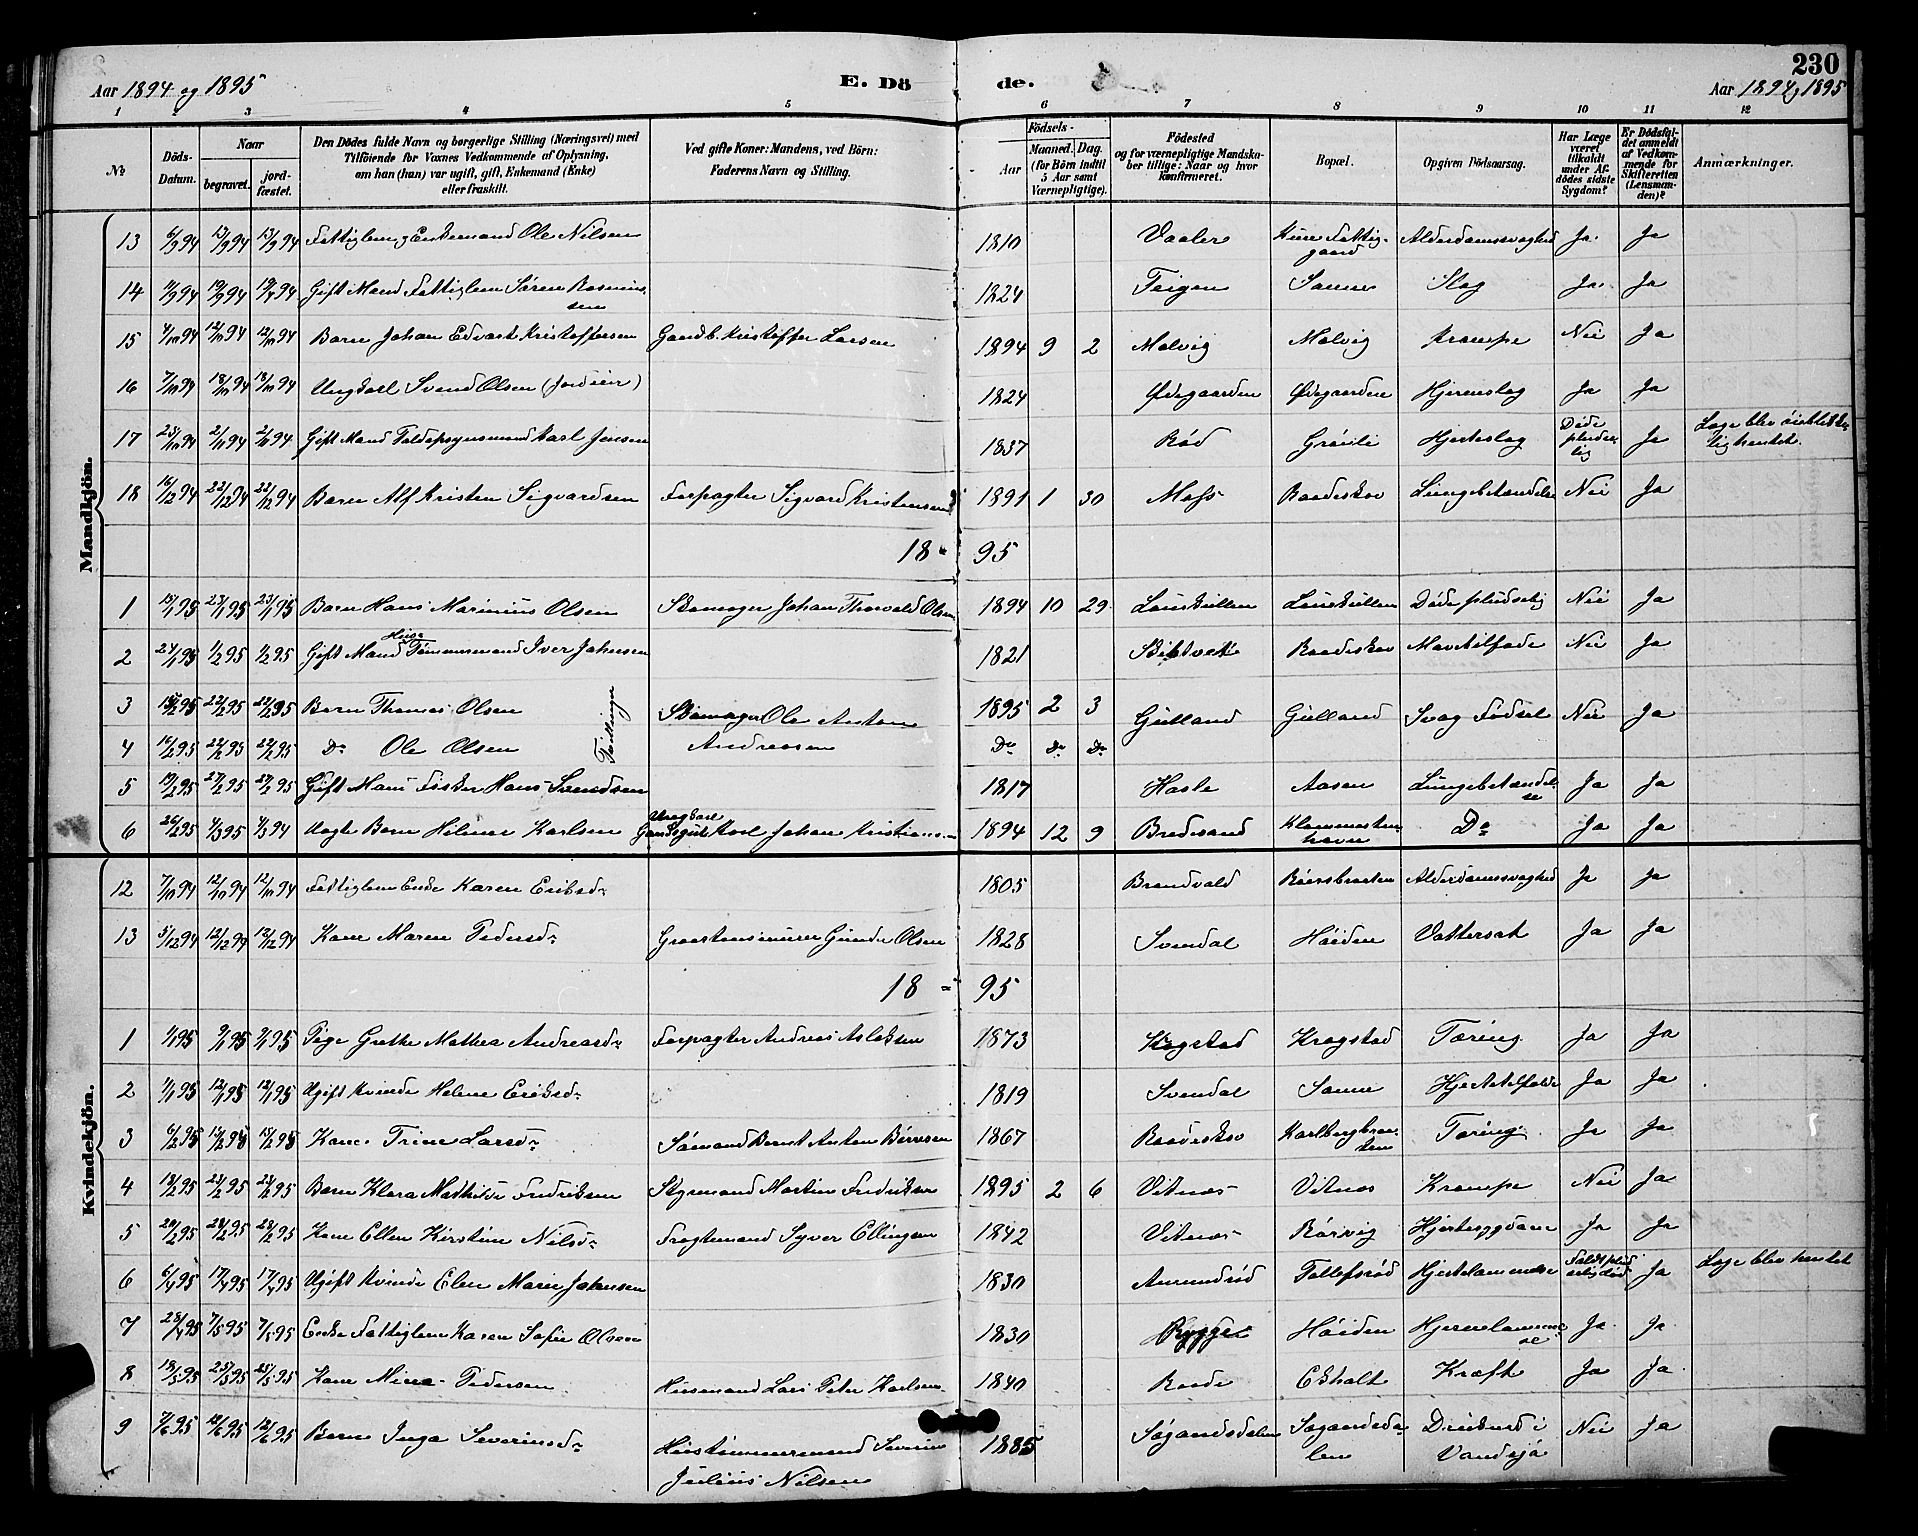 230
Aar 1894 og 1895 E. Dö de. Aar 1894 og 1895
1 2 3 4 5 6 7 8 9 10 11 12
No Döds-Datum. Naar begravet. jord-fæstet. Den Dödes fulde Navn og borgerlige Stilling (Næringsvei) med Tilföiende for Voxnes Vedkommende af Oplysning, om han (hun) var ugift, gift, Enkemand (Enke) eller fraskilt. Ved gifte Koner: Mandens, ved Börn: Faderens Navn og Stilling. Födsels- Aar Maaned. Dag. (for Börn indtil 5 Aar samt Værnepligtige). Födested og for værnepligtige Mandska-ber tillige: Naar og hvor konfirmeret. Bopæl. Opgiven Dödsaarsag. Har Læge været tilkaldt under Af-dödes sidste Sygdom? Er Dödsfal-det anmeldt af Vedkom-mende for Skifteretten (Lensman-den)? Anmærkninger.
Mandkjön.
13 6/9 94 13/9 94 13/9 94 Fattiglem, Enkemand Ole Nilsen 1810 Vaaler Kure Fattig-gaard Alderdomssvaghed Ja Ja
14 94 19/9 94 94 Gift Mand Fattiglem Sören Rasmus-sen 1824 Teigen Sanne Slag Ja Ja
15 94 12/10 94 12/10 94 Barn Johan Edvart Kristoffersen Gaardb. Kristoffer Larsen 1894 9 2 Malvig Malvig Krampe Nei Ja
16 7/10 94 13/10 94 13/10 94 Ungkarl Svend Olsen (Jordeier) 1824 Ødegaarden Ødegaarden Hjerneslag Ja Ja
17 23/10 94 2/11 94 2/11 94 Gift Mand Toldopsynsmand Karl Jensen 1837 Röd Grönli Hjerteslag Döde pludse-lig Ja Læge blev öieblikke-lig hentet.
18 16/12 94 22/12 94 22/12 94 Barn Alf Kristen Sigvardsen Forpagter Sigvard Kristensen 1891 1 30 Moss Raadeskov Lungebetændelse Nei Ja
18 - 95
1 15/1 95 23/1 95 23/1 95 Barn Hans Marinius Olsen Skomager Johan Thorvald Olsen 1894 10 29 Löuskullen Löuskullen Döde pludselig Nei Ja
2 24/1 95 1/2 95 1/2 95 Gift Mand Hus Tömmermand Iver Johnsen 1821 Raadeskov Mavetilfælde Nei Ja
3 15/2 95 22/2 95 22/2 95 Barn Thomas Olsen Tvillinger Skomager Ole Anton 1895 2 3 Gulland Gulland Svag Födsel Nei Ja
4 16/2 95 22/2 95 22/2 95 Do Ole Olsen Andreasen Do Do Do
5 19/2 95 27/2 95 27/2 95 Gift Mand Fisker Hans Svendsen 1817 Hasle Aasen Lungebetændel-se Ja Ja
6 26/2 95 4/3 95 4/3 94 Uægte Barn Hilmar Karlsen Ungkarl Gaardsgut Karl Johan Kristians 1894 12 9 Bredesand Klommesten havn Do Ja Ja
Kvindekjön.
12 7/10 94 12/10 94 12/10 94 Fattiglem Enke Karen Eriksd: 1805 Brandvold Alderdomssvaghed Ja Ja
13 5/12 94 12/12 94 12/12 94 Kone Maren Pedersd: Graastensmurer Gunder Olsen 1828 Svendal Höiden Vattersot Ja Ja
18 = 95
1 1/1 95 9/1 95 9/1 95 Pige Grethe Mathea Andreasd: Forpagter Andreas Aslaksen 1873 Kragstad Kragstad Tæring Ja Ja
2 1/1 95 12/1 95 12/1 95 Ugift Kvinde Helene Eriksd: 1819 Svendal Sanne Hjertetilfælde Ja Ja
3 6/2 95 15/2 95 15/2 95 Kone Trine Larsd: Sömand Bernt Anton Börresen 1867 Raadeskov Karlbergbraa-ten Tæring Ja Ja
4 18/2 95 23/2 95 23/2 95 Barn Klara Mathilde Fredriksen Styrmand Martin Fredriksen 1895 2 6 Vitnæs Vitnæs Krampe Nei Ja
5 20/2 95 28/2 95 28/2 95 Kone Ellen Kirstine Nilsd: Fragtemand Syver Ellingsen 1842 Vitnæs Rörvig Hjertesygdom Ja Ja
6 6/4 95 17/4 95 17/4 95 Ugift Kvinde Elen Marie Johnsen 1830 Aanundröd Tollefsröd Hjertelammelse Faldt plud-selig död Ja Læge blev hentet
7 28/4 95 7/5 95 7/5 95 Enke Fattiglem Karen Sofie Olsen 1830 Rygge Höiden Hjernelammel-se Ja Ja
8 18/5 95 25/5 95 25/5 95 Kone Mina Pedersen Husmand Lars Peter Karlsen 1840 Raade Ekholt Kræft Ja Ja
9 7/6 95 12/6 95 12/6 95 Barn Inga Severinsd: Hustömmermand Severin 1885 Sögaardsdalen Sögaardsda-len Druknede i Vandsjö Nei Ja
Julius Nilsen